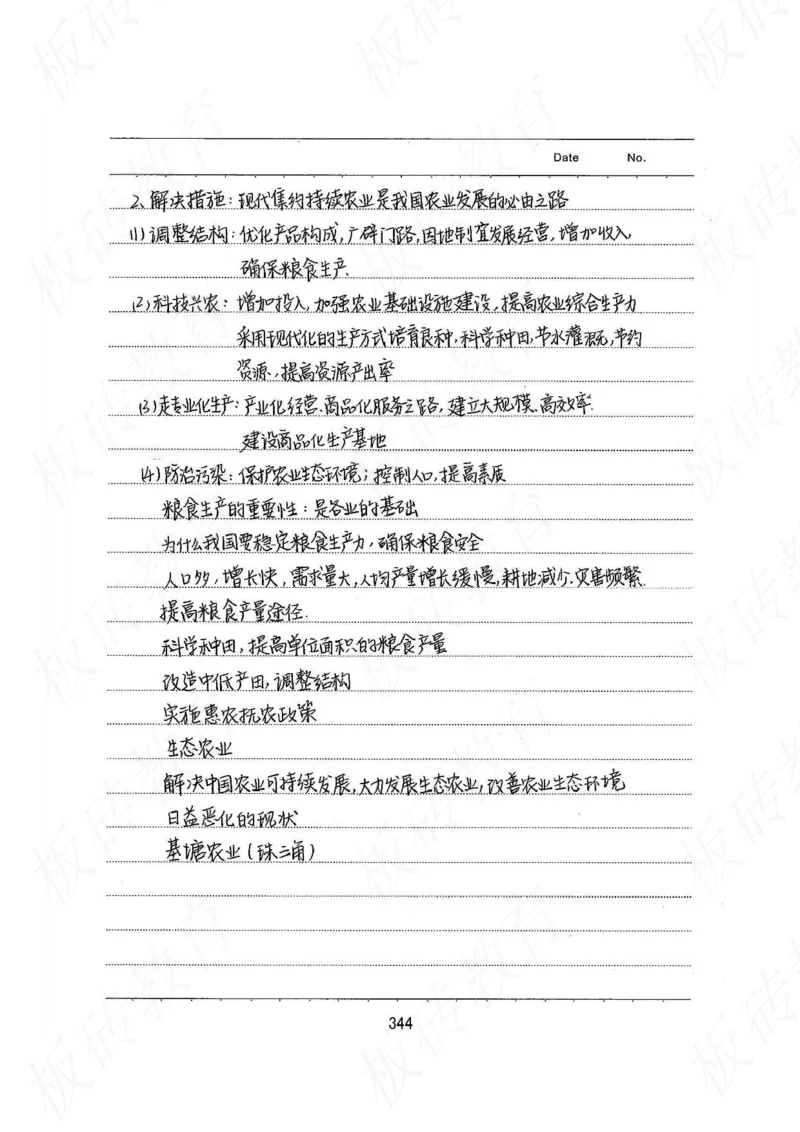 Date No.
2、解决措施：现代集约持续农业是我国农业发展的必由之路
(1)调整结构：优化产品构成，广辟门路，因地制宜发展经营，增加收入
确保粮食生产.
(2)科技兴农：增加投入，加强农业基础设施建设，提高农业综合生产力
采用现代化的生产方式培育良种，科学种田，节水灌溉，节约
资源，提高资源产出率
(3)走专业化生产：产业化经营、商品化服务之路，建立大规模、高效率.
建设商品化生产基地
(4)防治污染：保护农业生态环境；控制人口，提高素质
粮食生产的重要性：是各业的基础
为什么我国要稳定粮食生产力，确保粮食安全
人口多，增长快，需求量大，人均产量增长缓慢，耕地减少、灾害频繁.
提高粮食产量途径.
科学种田，提高单位面积的粮食产量
改造中低产田，调整结构
实施惠农抚农政策
生态农业
解决中国农业可持续发展，大力发展生态农业，改善农业生态环境
日益恶化的现状
基塘农业(珠三角)
344
板砖教育